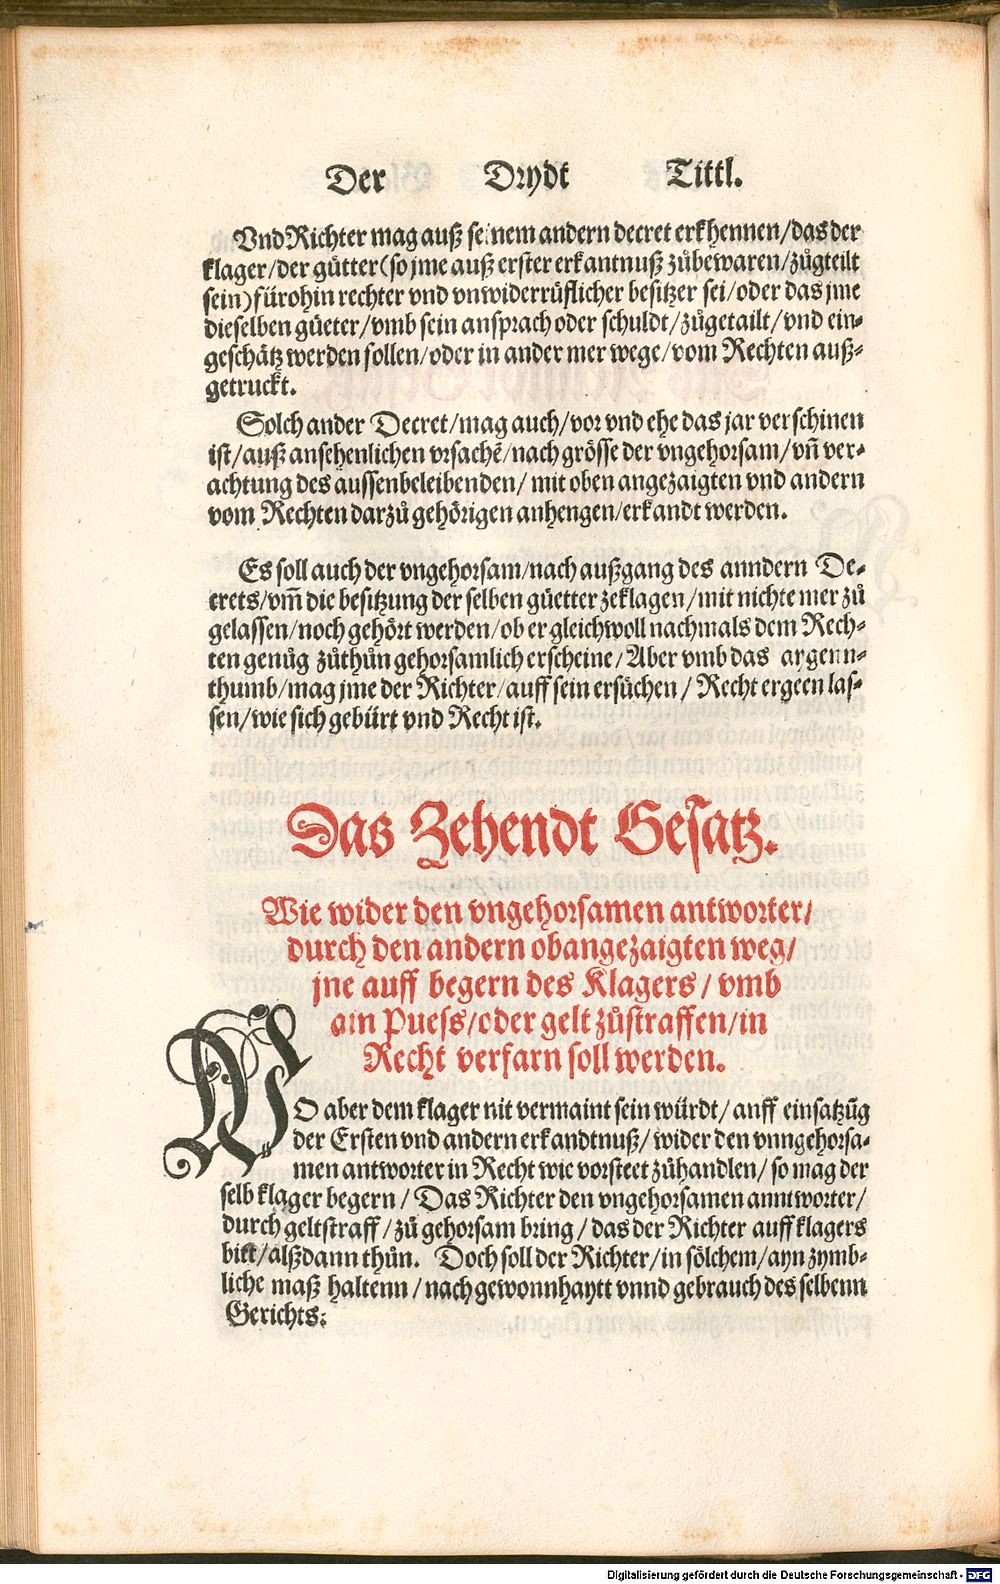 Der Drydt Tittl.
Vnd Richter mag auß seinem andern decret erkhennen/das der
klager/der gütter(so jme auß erster erkantnuß zůbewaren/zůgteilt
sein)fürohin rechter vnd vnwiderrüflicher besitzer sei/oder das jme
dieselben güeter/vmb sein ansprach oder schuldt/zůgetailt/vnd ein-
geschätz werden sollen/oder in ander mer wege/vom Rechten auß-
getruckt.
Solch ander Decret/mag auch/vor vnd ehe das jar verschinen
ist/auß ansehenlichen vrsachē/nach grösse der vngehorsam/vñ ver-
achtung des aussenbeleibenden/mit oben angezaigten vnd andern
vom Rechten darzů gehörigen anhengen/erkandt werden.
Es soll auch der vngehorsam/nach außgang des anndern De-
crets/vm̃ die besitzung der selben güetter zeklagen/mit nichte mer zů
gelassen/noch gehört werden/ob er gleichwoll nachmals dem Rech-
ten genůg zůthůn gehorsamlich erscheine/Aber vmb das aygenn-
thumb/mag jme der Richter/auff sein ersůchen/Recht ergeen las-
sen/wie sich gebürt vnd Recht ist.
Das Zehendt Gesatz.
Wie wider den vngehorsamen antworter/
durch den andern obangezaigten weg/
jne auff begern des Klagers/vmb
ain Puess/oder gelt zůstraffen/in
Recht verfarn soll werden.
WO aber dem klager nit vermaint sein würdt/auff einsatzūg
der Ersten vnd andern erkandtnuß/wider den vnngehorsa-
men antworter in Recht wie vorsteet zůhandlen/so mag der
selb klager begern/Das Richter den vngehorsamen anntworter/
durch geltstraff/zů gehorsam bring/das der Richter auff klagers
bitt/alßdann thůn. Doch soll der Richter/in sölchem/ayn zymb-
liche maß haltenn/nach gewonnhaytt vnnd gebrauch des selbenn
Gerichts:
Digitalisierung gefördert durch die Deutsche Forschungsgemeinschaft - DFG